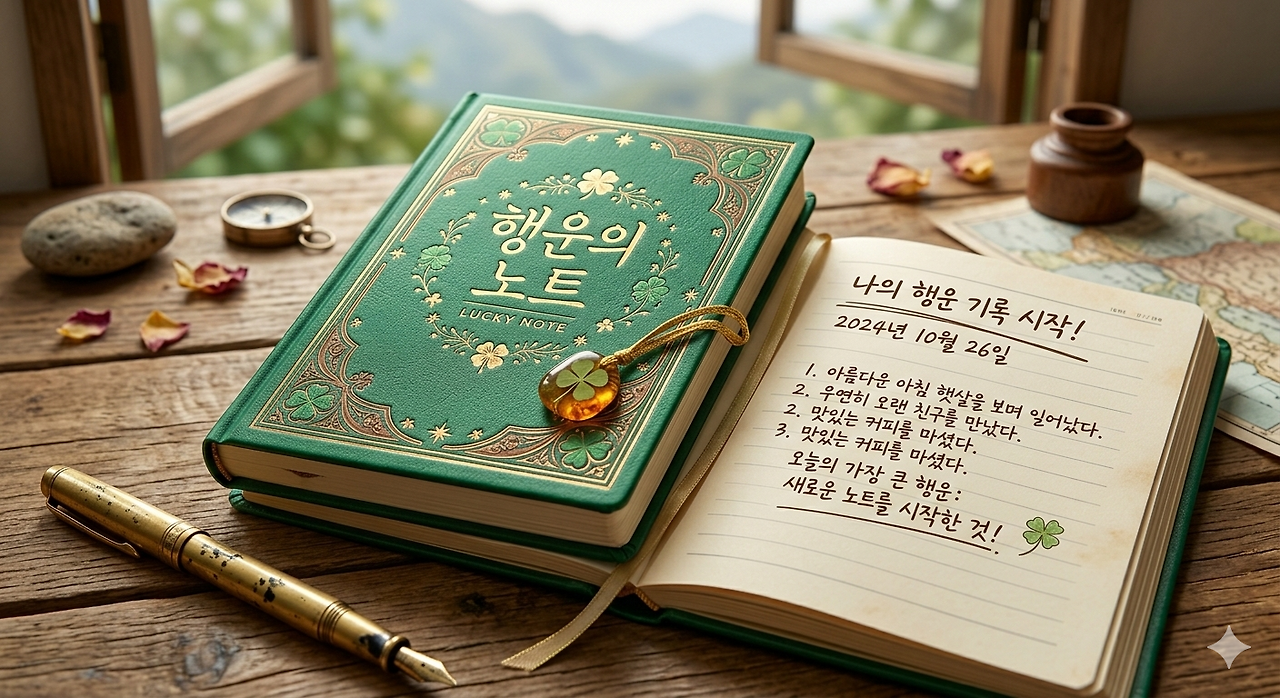 행운의
노트
LUCKY NOTE
나의 행운 기록 시작!
2024년 10월 26일
1. 아름다운 아침 햇살을 보며 일어났다.
2. 우연히 오랜 친구를 만났다.
2. 맛있는 커피를 마셨다.
3. 맛있는 커피를 마셨다.
오늘의 가장 큰 행운:
새로운 노트를 시작한 것!